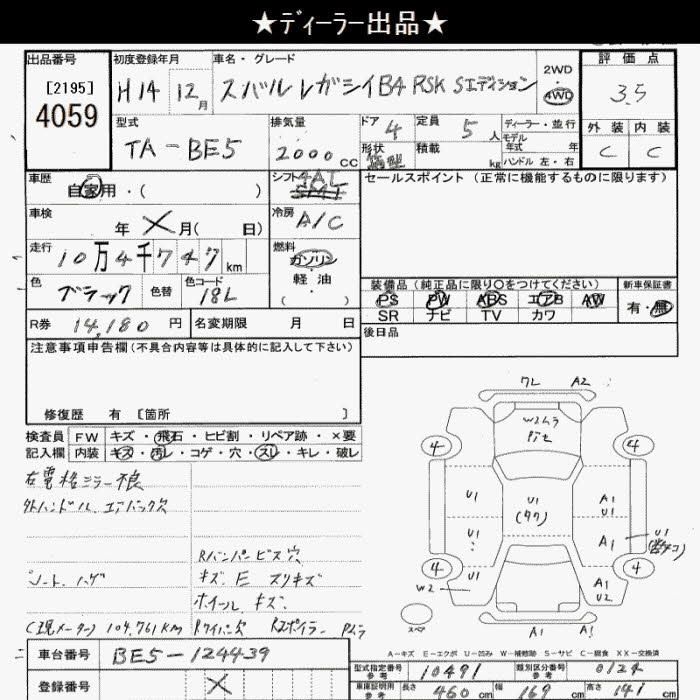 ★ディーラー出品★
出品番号 初度登録年月 車名・グレード 評価点
[2195] H14 12月 スバル レガシィB4 RSK Sエディション 2WD 4WD 3.5
4059
型式 排気量 ドア 定員 ディーラー・並行 外装 内装
TA-BE5 2000cc 4 5人 モデル年式 年 C C
形状 箱型 積載 kg ハンドル 左・右
車歴 自家用・( ) シフト 4AT セールスポイント (正常に機能するものに限ります)
車検 年 月( 日) 冷房 A/C
走行 10万4千747km 燃料 ガソリン
軽油
色 ブラック 色替 色コード 18L ( )
装備品(純正品に限り○をつけてください) 新車保証書
PS PW ABS エアB AW 有・無
SR ナビ TV カワ
R券 14,180円 名変期限 月 日 後日品
注意事項申告欄(不具合内容等は具体的に記入して下さい)
修復歴 有 [箇所 ]
検査員 FW キズ・飛石・ヒビ割・リペア跡・×要
記入欄 内装 キズ・汚レ・コゲ・穴・スレ・キレ・破レ
右電格ミラー不良
外ハンドル、エアバック欠
Rバンパービス穴
シート ハゲ キズ E スリキズ
ホイール キズ
(現メーター) 104,761KM Rワイパー欠 Rスポイラー
ワレ A2
W2ムラ
4 4
U1 U1 A1
(タタ) U1
U1 A1 U1
4 4
W2 U1 A1
U2
スペア A1 A1
A-キズ E-エクボ U-凹み W-補修跡 S-サビ C-腐食 XX-交換済
車台番号 BE5-124439
型式指定番号 参考 10491 類別区分番号 参考 0124
登録番号
車庫証明用 参考 長さ 460cm 幅 169cm 高さ 141cm